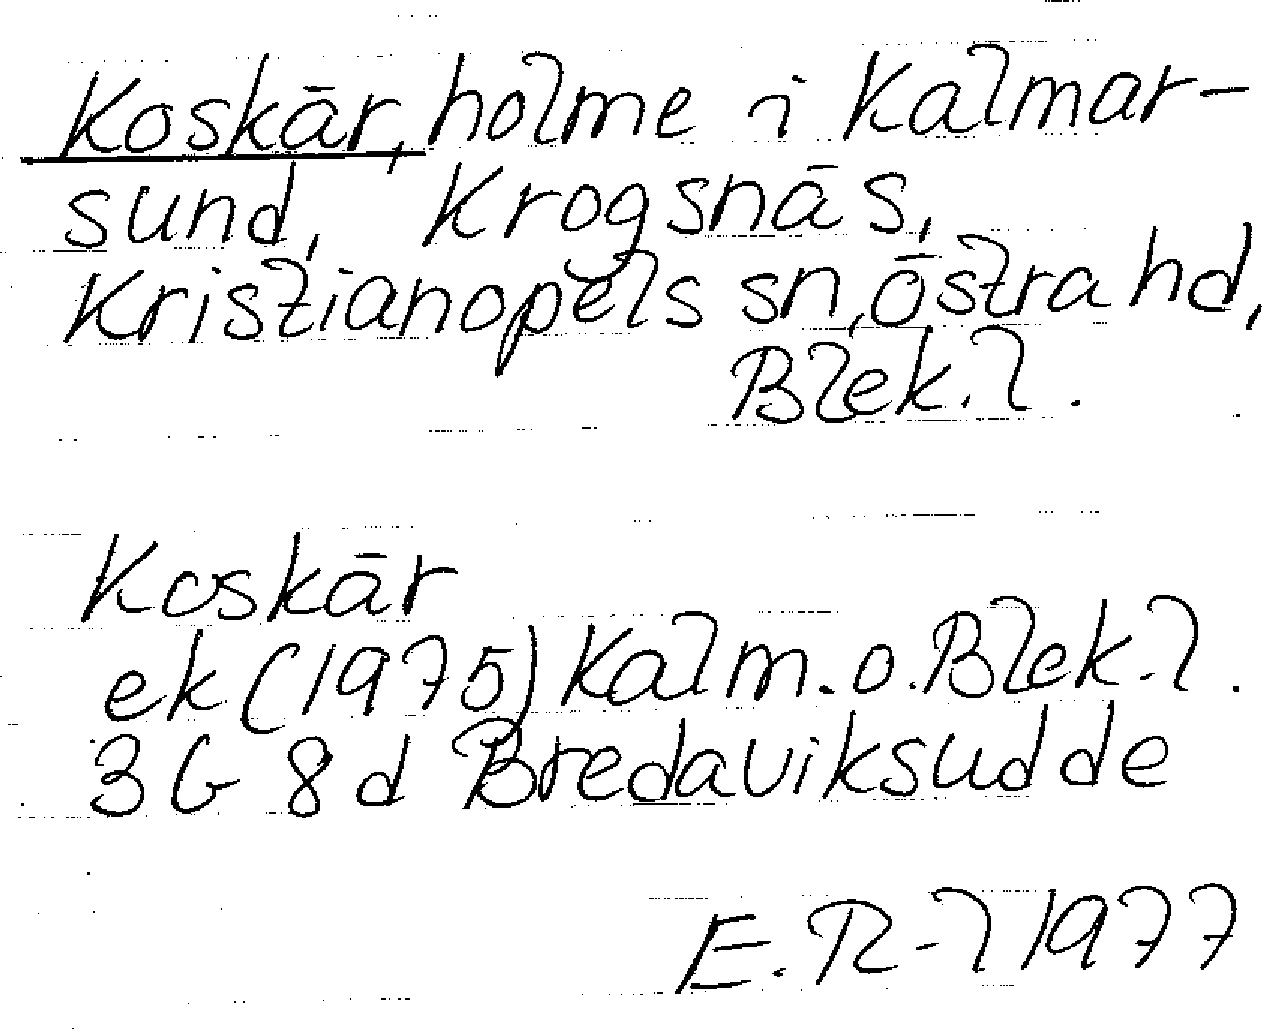 Koskär, holme i Kalmar-
sund, Krogsnäs,
Kristianopels sn, Östra hd,
Blek. l.
Koskär
ek (1975) Kalm. o. Blek. l.
3G 8d Bredaviksudde
E. R-l 1977